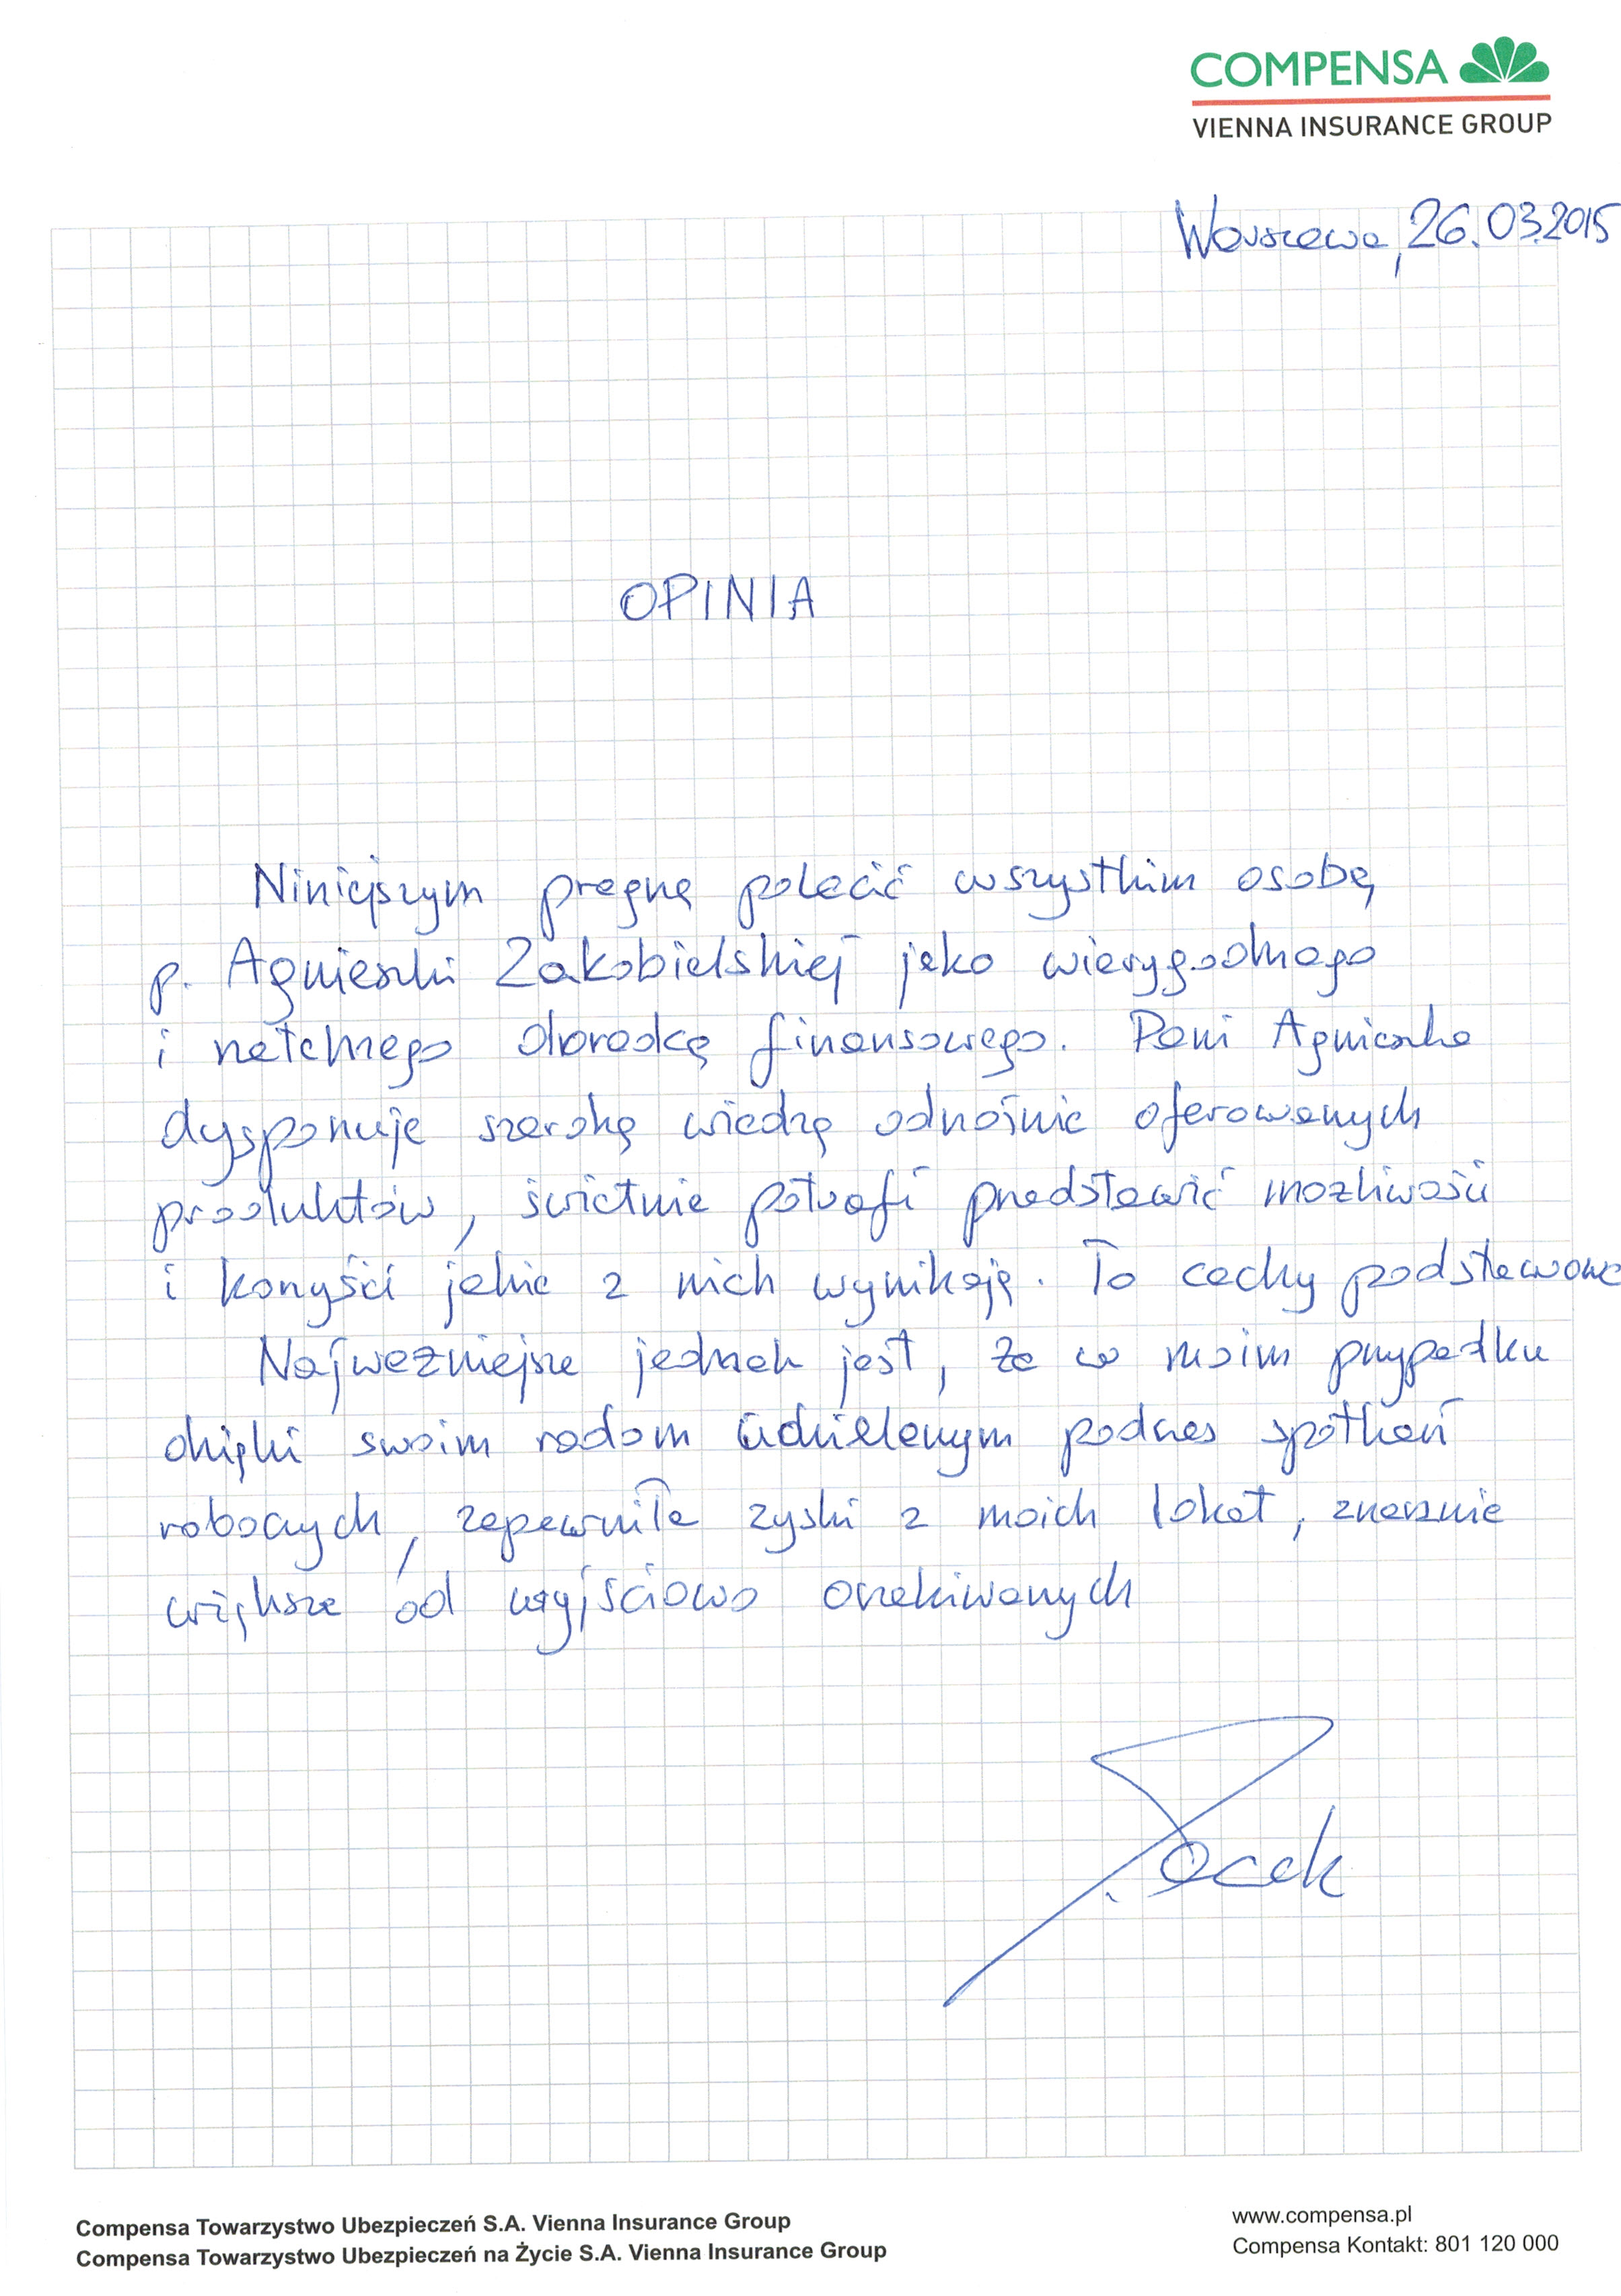 COMPENSA
VIENNA INSURANCE GROUP
Warszawa, 26.03.2015
OPINIA
Niniejszym pragnę polecić wszystkim osobę
p. Agnieszki Zakobielskiej jako wiarygodnego
i rzetelnego doradcę finansowego. Pani Agnieszka
dysponuje szeroką wiedzą odnośnie oferowanych
produktów, świetnie potrafi przedstawić możliwości
i korzyści jakie z nich wynikają. To cechy podstawowe
Najważniejsze jednak jest, że w moim przypadku
dzięki swoim radom udzielonym podczas spotkań
roboczych, zapewniła zyski z moich lokat, znacznie
większe od wyjściowo oczekiwanych
Jacek
Compensa Towarzystwo Ubezpieczeń S.A. Vienna Insurance Group
Compensa Towarzystwo Ubezpieczeń na Życie S.A. Vienna Insurance Group
www.compensa.pl
Compensa Kontakt: 801 120 000